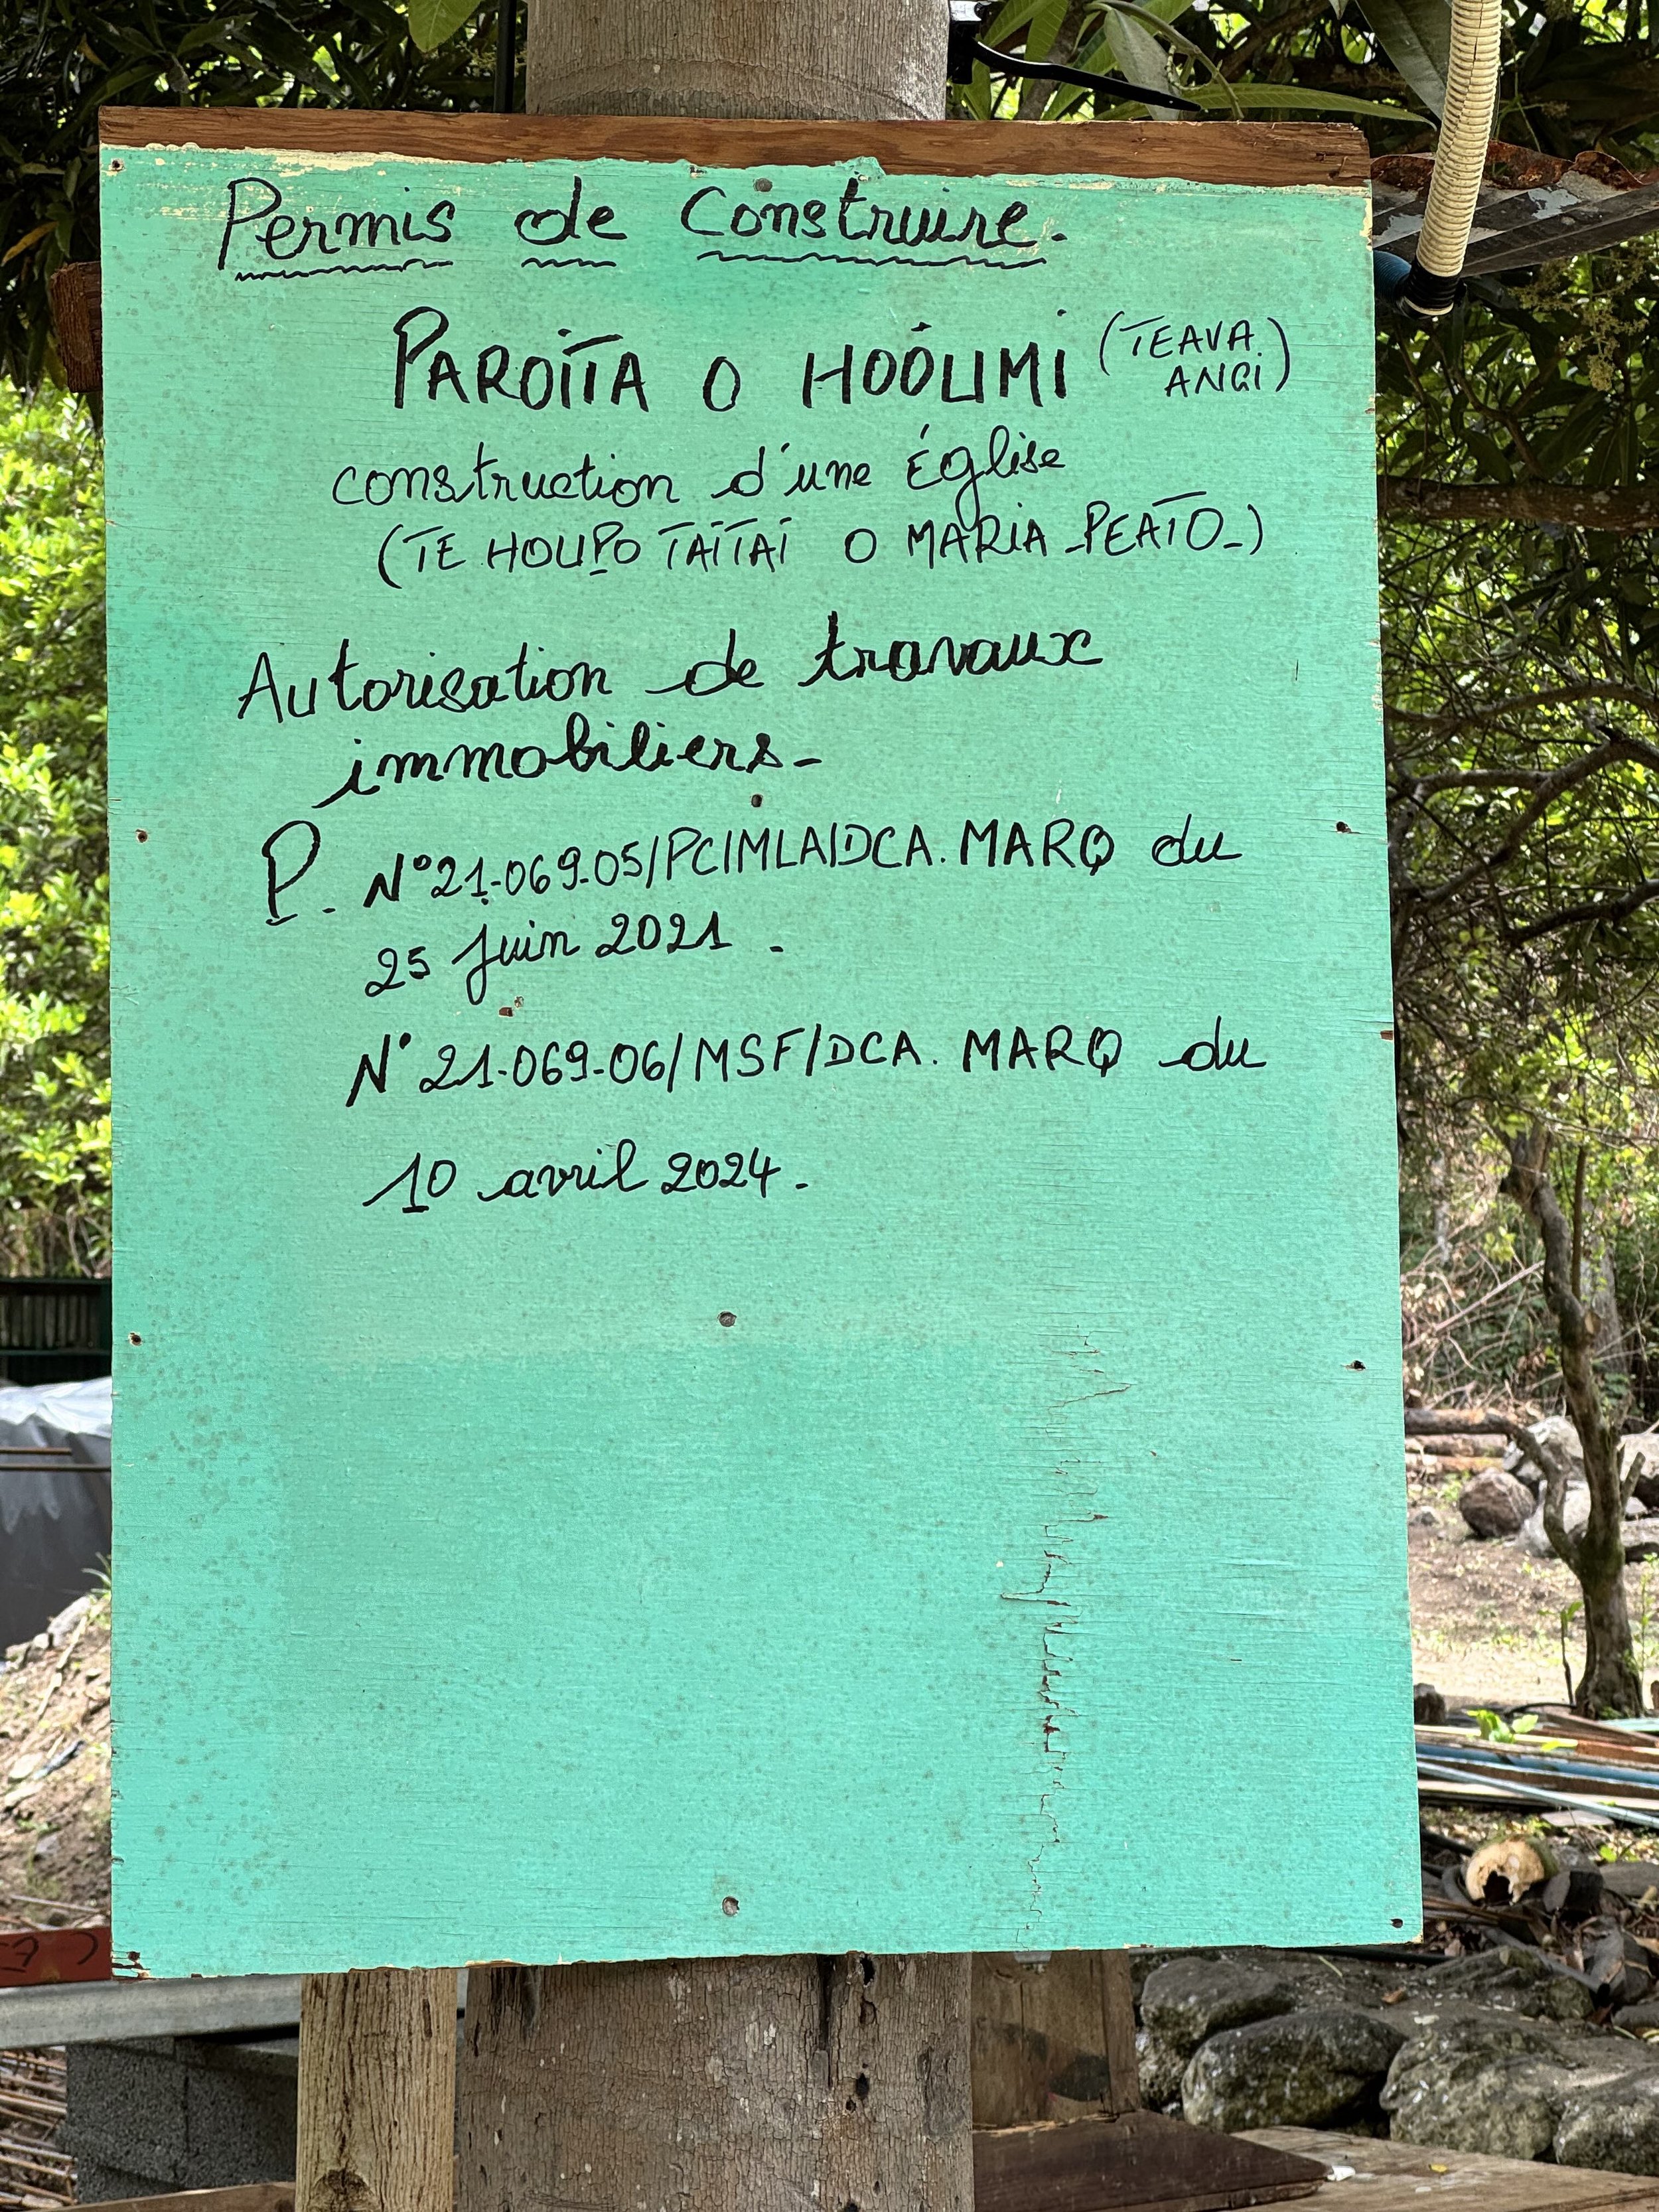 Permis de Construire.
PAROÏTA O HOÓUMI (TEAVA. ANQI)
construction d'une Église
(TE HOUPO TAÏTAÏ O MARIA_PEATO_)
Autorisation de travaux
immobiliers_
P. N°21-069-05/PC/MLA/DCA. MARQ du
25 juin 2021.
N° 21-069-06/MSF/DCA. MARQ du
10 avril 2024.